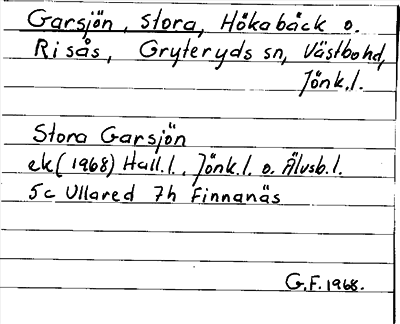 Garsjön, Stora, Håkabäck o.
Risås, Gryteryds sn, Västbohd,
Jönk.l.
Stora Garsjön
ek (1968) Hall.l., Jönk.l. o. Älvsb.l.
5c Ullared 7h Finnanäs
G.F. 1968.